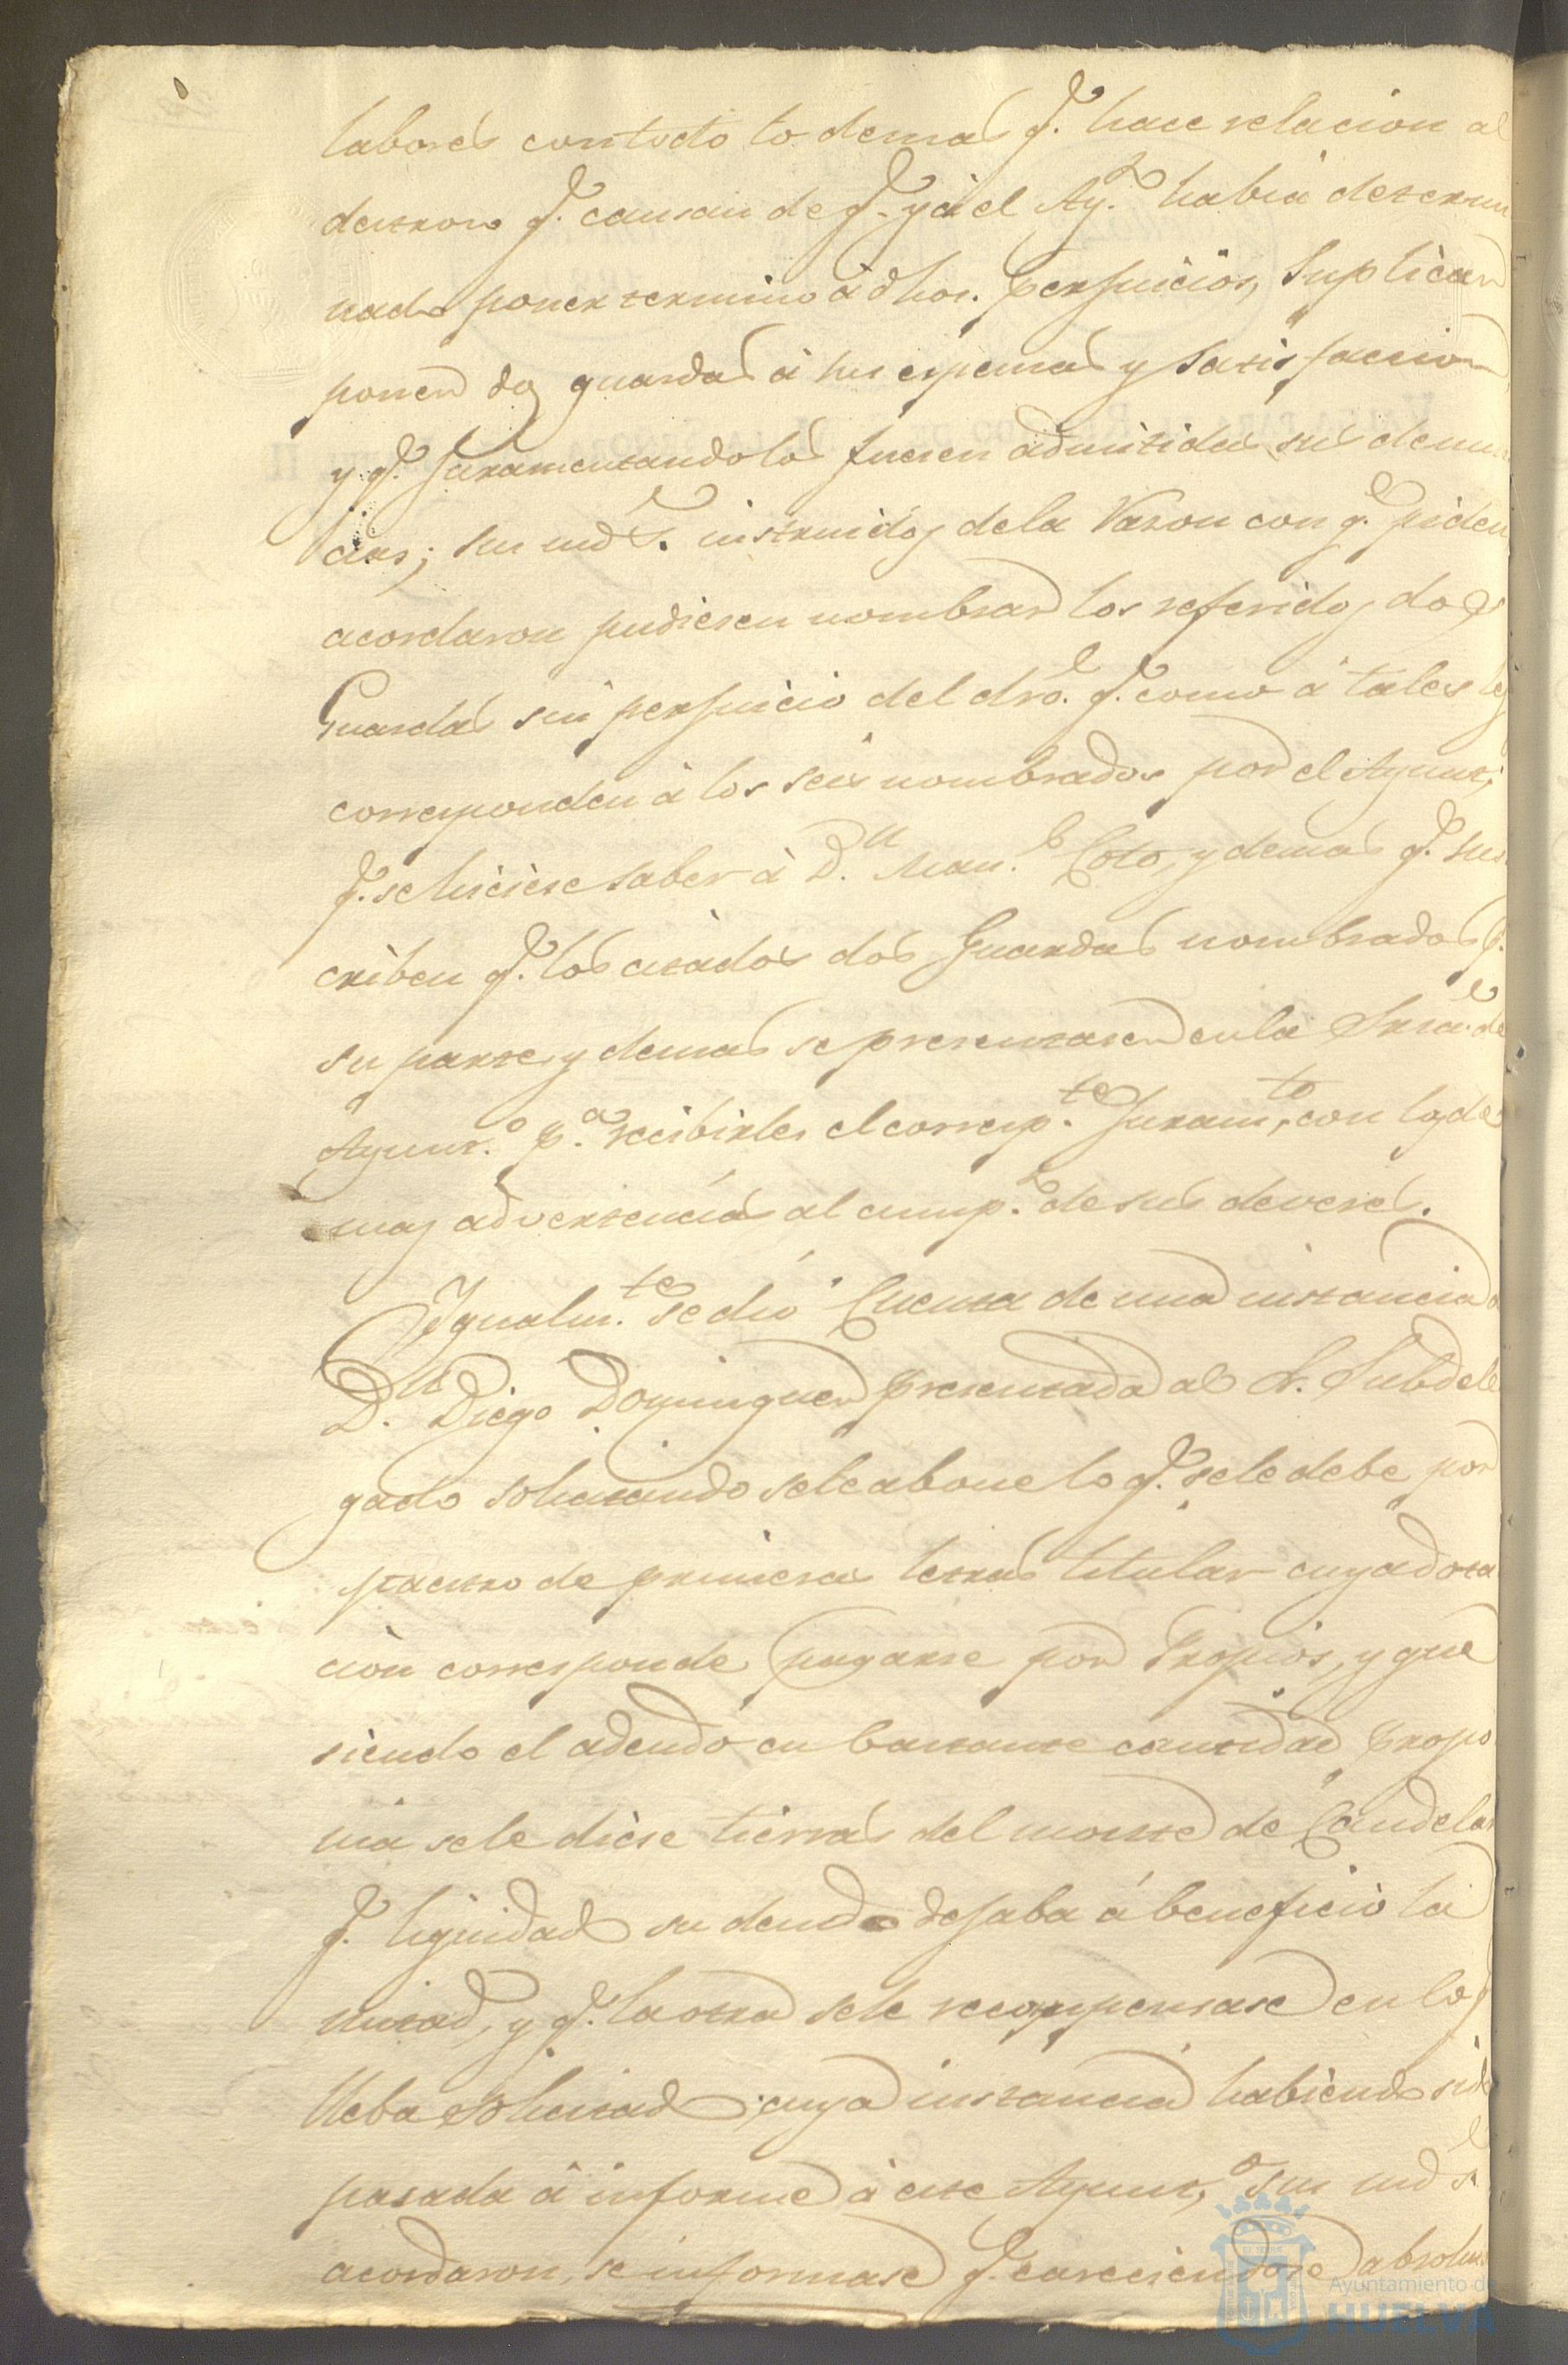 labores con todo lo demas q.e hace relacion al
destrozo q.e causan de q.e ya el Ay.to habia determi
nado poner termino á dhos. perjuicios, Suplican
poner dos guardas á sus espensas y satisfaccion
y q.e Juramentandolos fuesen admitidas sus denun
cias; sus md.s instruidos de la Razon con q.e piden
acordaron pudiesen nombrar los referidos dos
Guardas sin perjuicio del dro. q.e como á tales les
corresponden á los seis nombrados por el Ayunt.o
q.e se hiciese saber á D.n Man.l Coto, y demas q.e sus
criben q.e los citados dos Guardas nombrados p.r
su parte y demas se presentasen en la Sria. de
Ayunt.o p.a recibirles el corresp.te Juram.to con los de
mas advertencias al cump.o de sus deveres.
Igualm.te se dió Cuenta de una instancia de
D.n Diego Dominguez presentada al S. Subdele
gado solicitando se le abone lo q.e se le debe por
maestro de primeras letras titular cuya dota
cion corresponde pagarse por Propios, y que
siendo el adeudo en bastante cantidad propo
nia se le diese tierras del monte de Candelas
q.e liquidad su deuda dejaba á beneficio la
mitad, y q.e la otra se le recompensase en los q.e
lleba solicitado; cuya instancia habiendo sido
pasada á informe á este Ayunt.o sus md.s
acordaron se informase q.e careciendose absolut
Ayuntamiento de
HUELVA